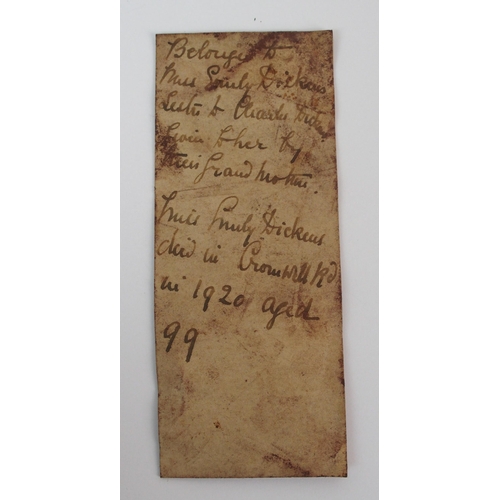 Belonged to
Miss Emily Dickens
Sister to Charles Dickens
Given to her by
their Grand Mother.
Miss Emily Dickens
died in Cromwell Rd
in 1920 aged
99